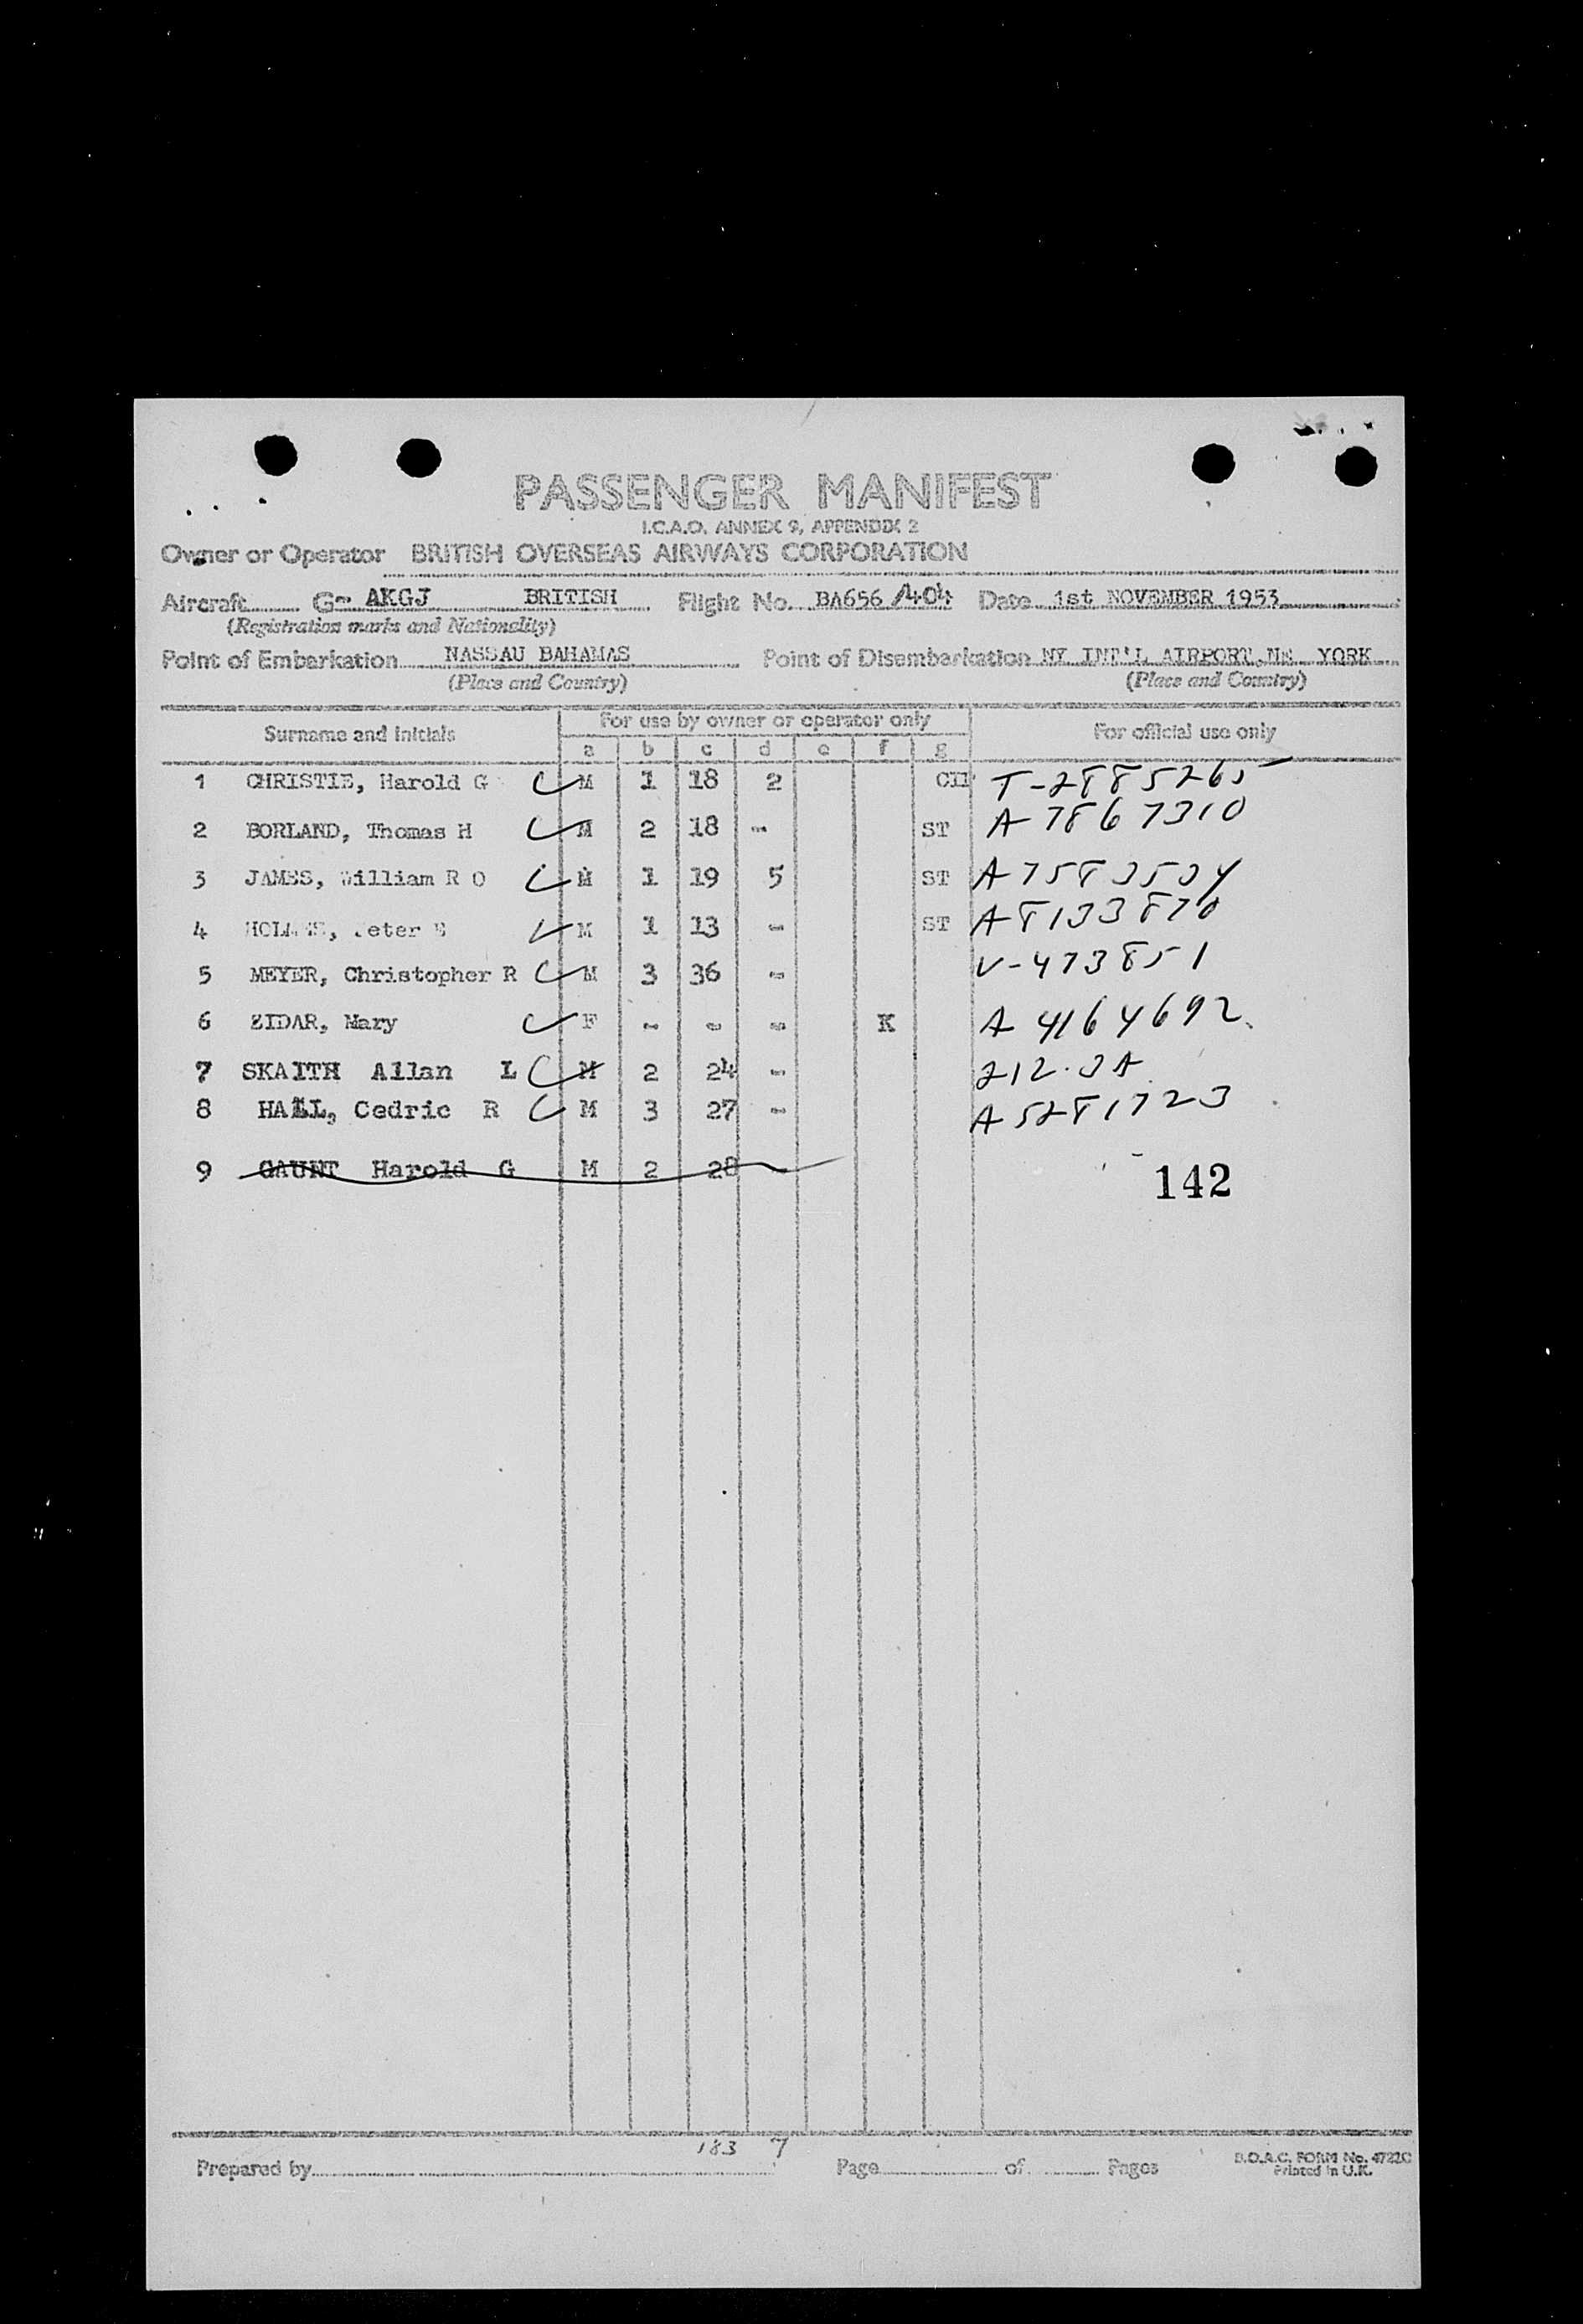 PASSENGER MANIFEST
I.C.A.O. ANNEX 9, APPENDIX 2
Owner or Operator BRITISH OVERSEAS AIRWAYS CORPORATION
Aircraft G- AKGJ BRITISH Flight No. BA656/404 Date 1st NOVEMBER 1953
(Registration marks and Nationality)
Point of Embarkation NASSAU BAHAMAS Point of Disembarkation NY INT'L AIRPORT, YORK
(Place and Country) (Place and Country)
Surname and Initials For use by owner or operator only For official use only
a b c d e f g
1 CHRISTIE, Harold G M 1 18 2 T-2885265
2 BORLAND, Thomas H M 2 18 - ST A-7867310
3 JAMES, William R O M 1 19 5 ST A-7583534
4 M 1 13 - ST A-8133870
5 MEYER, Christopher R M 3 36 - V-473851
6 ZIDAR, Mary F - - - K A 4164692
7 SKAITH Allan L M 2 24 - 212.3A
8 HALL, Cedric R M 3 27 - A5281723
9 GAUNT Harold G M 2 28 -
142
183 7
Prepared by Page of Pages
B.O.A.C. FORM No. 4722C
Printed in U.K.